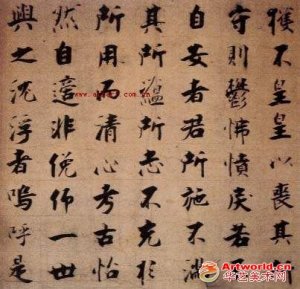 獲不足以喪其所
守則鬱怫憤戾若不
自安者君所施不滿
其所蘊所志不充於
所用而清心考古怡
然自適非俛仰一世
與之沉浮者嗚呼是
Artworld.cn
华艺美术网